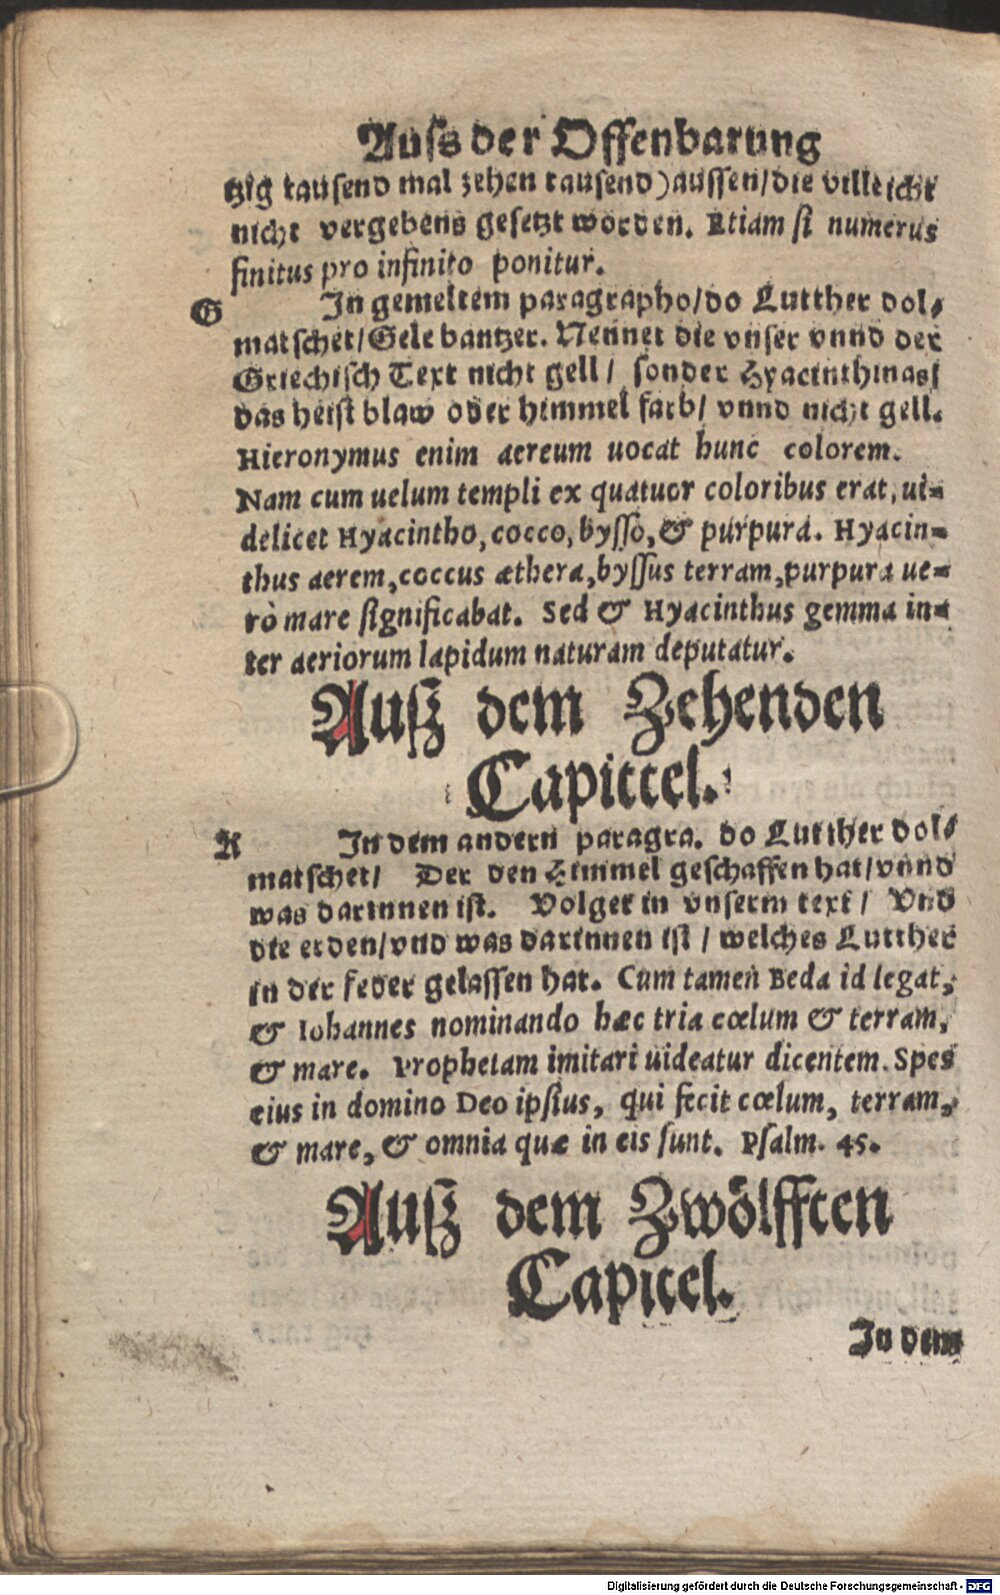 Auſs der Offenbarung
tzig tauſend mal zehen tauſend) auſſen/die villeicht
nicht vergebens geſetzt worden. Etiam ſi numerus
finitus pro infinito ponitur.
G In gemeltem paragrapho/do Lutther dol⸗
matſchet/Gele bantzer. Nennet die vnſer vnnd der
Griechiſch Text nicht gell/ ſonder Hyacinthinas/
das heiſt blaw oder himmel farb/ vnnd nicht gell.
Hieronymus enim aereum uocat hunc colorem.
Nam cum uelum templi ex quatuor coloribus erat, ui⸗
delicet Hyacintho, cocco, byſſo, & purpura. Hyacin⸗
thus aerem, coccus æthera, byſſus terram, purpura ue⸗
rò mare ſignificabat. Sed & Hyacinthus gemma in⸗
ter aeriorum lapidum naturam deputatur.
Auſz dem Zehenden
Capittel.
R In dem andern paragra. do Lutther dol⸗
matſchet/ Der den Himmel geſchaffen hat/vnnd
was darinnen iſt. Volget in vnſerm text/ Vnd
die erden/vnd was darinnen iſt/ welches Lutther
in der feder gelaſſen hat. Cum tamen Beda id legat,
& Iohannes nominando hæc tria cœlum & terram,
& mare. Prophetam imitari uideatur dicentem. Spes
eius in domino Deo ipſius, qui fecit cœlum, terram,
& mare, & omnia quæ in eis ſunt. Pſalm. 45.
Auſz dem Zwölfften
Capitel.
In dem
Digitalisierung gefördert durch die Deutsche Forschungsgemeinschaft - DFG